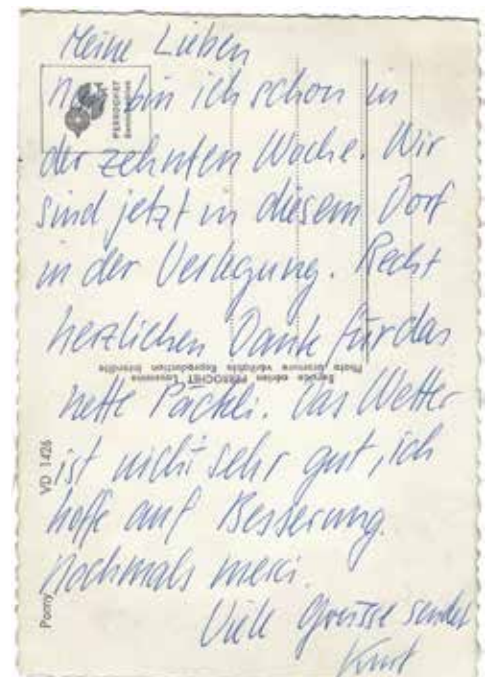 Meine Lieben
Nun bin ich schon in
der zehnten Woche. Wir
sind jetzt in diesem Dorf
in der Verlegung. Recht
herzlichen Dank für das
nette Päckli. Das Wetter
ist nicht sehr gut, ich
hoffe auf Besserung.
Nochmals merci.
Viele Grüsse sendet
Kurt
PERROCHET
Service édition PERROCHET Lausanne
Photo bromure véritable Reproduction interdite
Pomy VD 1426